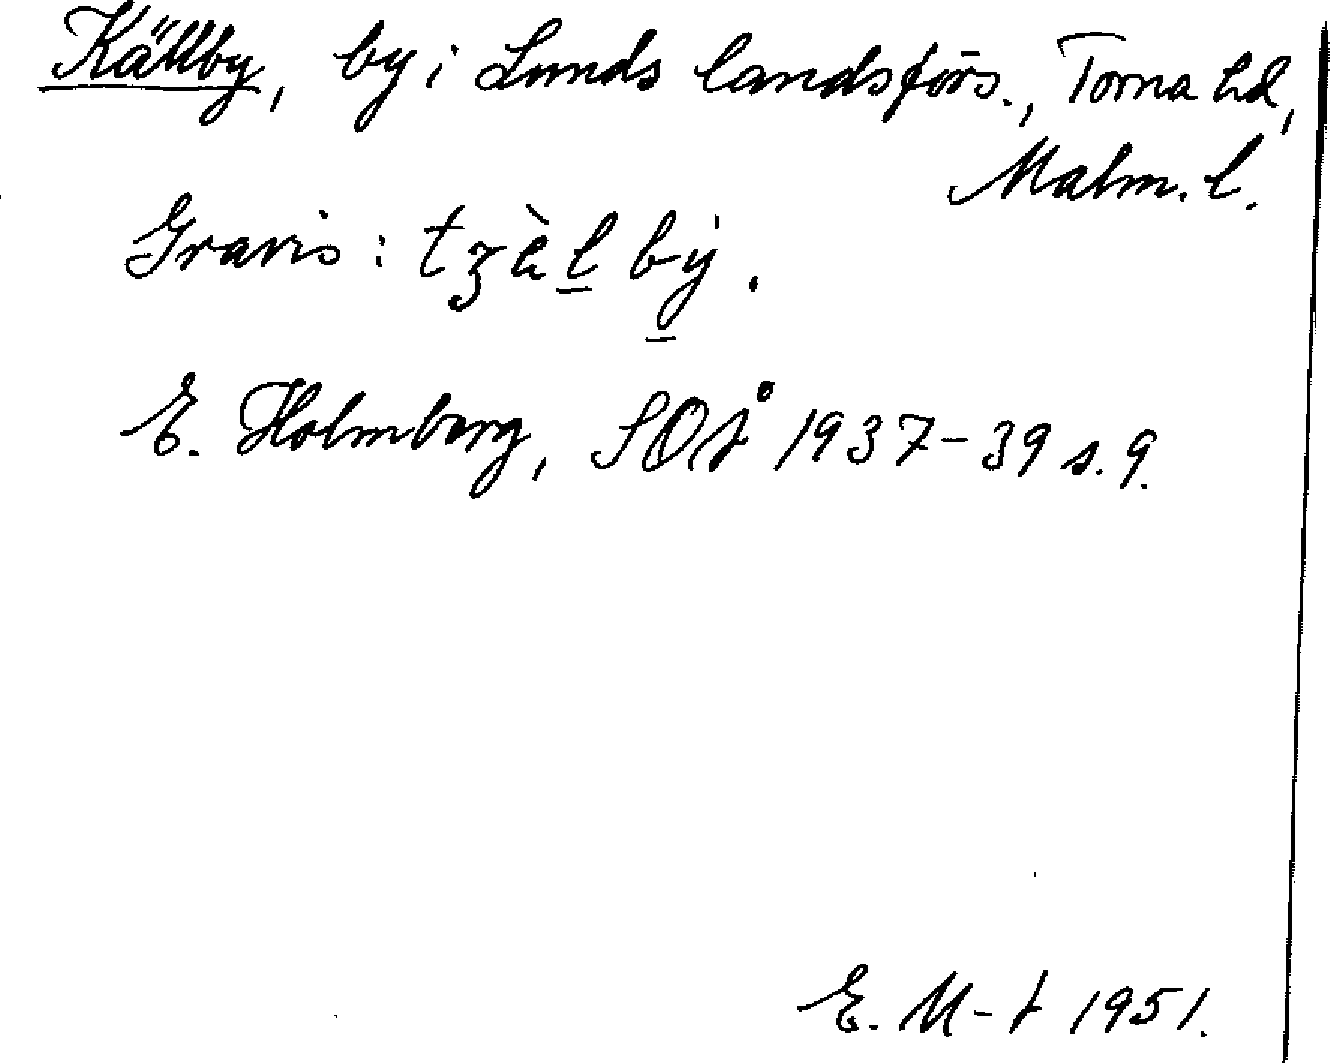 Källby, by i Lunds landsförs., Torna hd,
Malm. l.
Gravis: tʒàl bý.
E. Holmberg, SOÅ 1937-39 s. 9.
E. M-t 1951.